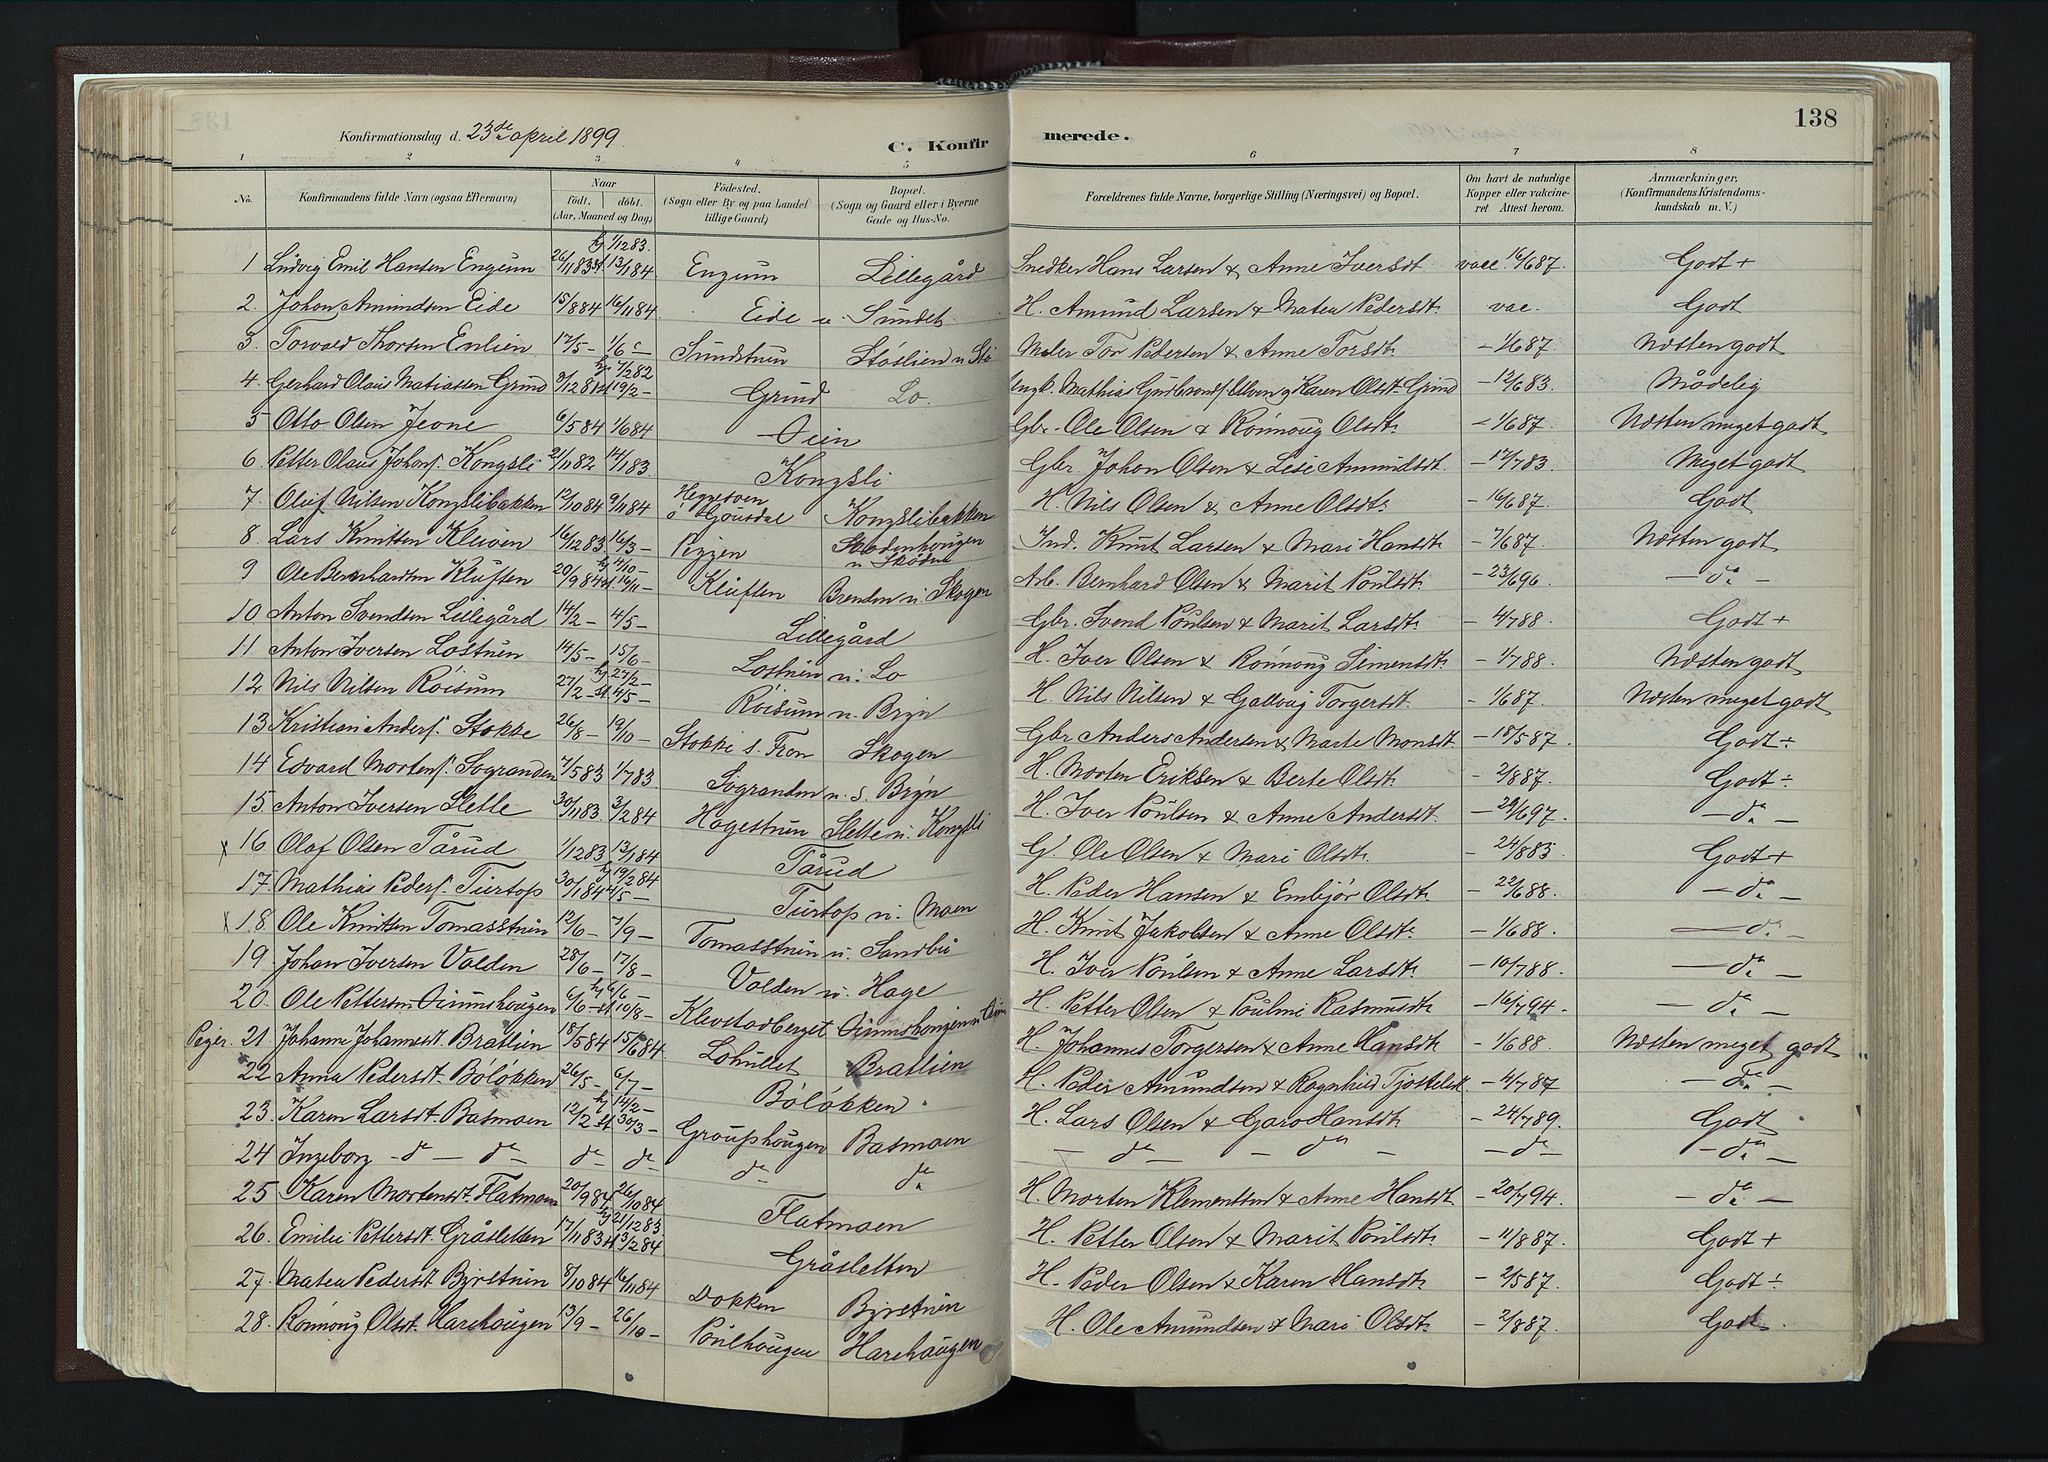 138
Konfirmationsdag d. 23de april 1899
C. Konfirmerede.
1 2 3 4 5 6 7 8
No. Konfirmandens fulde Navn (ogsaa Efternavn) Naar født. døbt. (Aar, Maaned og Dag) Fødested. (Sogn eller By og paa Landet tillige Gaard) Bopæl. (Sogn og Gaard eller i Byerne Gade og Hus-No. Forældrenes fulde Navne, borgerlige Stilling (Næringsvei) og Bopæl. Om havt de naturlige Kopper eller vakcineret. Attest herom. Anmærkninger. (Konfirmandens Kristendomskundskab m. V.)
1 Ludvig Emil Hansen Engum 26/1183 hj 1/1283. st 13/184 Engum Lillegård Snedker Hans Larsen & Anne Iversdt. vacc. 16/687. Godt +
2. Johan Amundsen Eide 15/884 16/1184 Eide u. Sundet H. Amund Larsen & Matea Pedersdt. vac. Godt
3. Torvald Thorsen Enlien 12/5 - 1/6 - Sundstuen Støslien u. Maler Tor Pedersen & Anne Torsdt. - 1/687. Næsten godt
4. Gerhard Olaus Matiassen Grind 9/1281 hj 7/282 st 19/2 - Grind Lo. Mathias Gudbrands. & Karen Olsdt. Grind - 12/683. Mådelig
5 Otto Olsen Jeone 6/584 1/684 Oien Gbr. Ole Olsen & Rønnoug Olsdt. - 1/687. Næsten meget godt
6. Petter Olaus Johans. Kongsli 21/1182 14/183. Kongsli Gbr. Johan Olsen & Lise Amundsdt. - 12/783. Meget godt
7. Oluf Nilsen Kongslibakken 12/1084 9/1184 Kongslibakken H. Nils Olsen & Anne Olsdt. - 16/687. Godt
8. Lars Knutsen Kleiven 16/1283 16/3 - Piggen Ind. Knut Larsen & Mari Hansdt. - 7/687. Næsten godt
9 Ole Bernhardsen Kluften 20/984 hj 4/10 - st 16/11 - Kluften Brenden u. Skogen Arb. Bernhard Olsen & Marit Poulsdt. - 23/696. - do -
10. Anton Svendsen Lillegård 14/2 - 4/5 - Lillegård Gbr. Svend Poulsen & Marit Larsdt. - 4/788. Godt +
11. Anton Iversen Lostuen 14/5 - 15/6 - Lostuen u. Lo H. Iver Olsen & Rønnoug Simensdt. - 1/788. Næsten godt
12 Nils Nilsen Røisum 27/2 - hj 27/2 - st 4/5 - Røisum u. Bryn H. Nils Nilsen & Gallaug Torgersdt. - 1/687. Næsten meget godt
13 Kristian Anders. Stokke 26/8 - 19/10 - Stokke s. Fron Skogen Gbr Anders Andersen & Marte Monsdt - 18/587. Godt ÷
14 Edvard Mortens. Sogranden 7/583 1/783. Sogranden u. s. Bryn H. Morten Eriksen & Berte Olsdt. - 2/887. Godt ÷
15. Anton Iversen Slette 30/1183. 3/284 Hagestuen Slette u. Kongsli H. Iver Poulsen & Anne Andersdt. - 29/697. - do -
x 16 Olaf Olsen Tårud 1/1283 13/184 Tårud G. Ole Olsen & Mari Olsdt. - 24/885 Godt +
17. Mathias Peders. Turtop 30/184 hj 19/284 4/5 - Turtop u. Moen H. Peder Hansen & Embjør Olsdt. - 22/688. - do -
x 18. Ole Knutsen Tomasstuen 12/6 - 7/9 - Tomasstuen u. Sandbu H. Knut Jakobsen & Anne Olsdt. - 1/688. - do -
19. Johan Iversen Volden 28/6 - 17/8 - Volden u. Hage H. Iver Poulsen & Anne Larsdt. - 10/788. - do -
20. Ole Pettersen Oiumshougen 6/6 - hj 6/6 - st 10/8 - Klevstadberget Oiumshougen u. Oium H. Petter Olsen & Pouline Rasmusdt. - 16/794. - do -
Piger. 21. Johanne Johannesdt. Bratlien 18/584 15/684 Lohullet Bratlien H. Johannes Torgersen & Anne Hansdt. - 1/688. Næsten meget godt
22 Anna Pedersdt. Bøløkken 26/5 - 6/7 - Bøløkken. H. Peder Amundsen & Ragnhild - 4/787 - do -
23. Karen Larsdt. Basmoen 12/2 hj 14/2 - st 30/3 - Grouphougen Basmoen H. Lars Olsen & Garo Hansdt. - 24/789. Godt
24 Ingeborg - do - do - do - do - do - do - do - do - - do - - do -
25 Karen Mortensdt. Flatmoen 20/984 26/1084 Flatmoen H. Morten Klementsen & Anne Hansdt. - 20/794. - do -
26. Emilie Pettersdt. Gråsletten 17/1183 hj 21/1283 st 13/284 Gråsletten H. Petter Olsen & Marit Poulsdt. - 11/887. Godt +
27. Matea Pedersdt. Byrstuen 8/1084 16/1184 Dokken Byrstuen H. Peder Olsen & Karen Hansdt. - 2/587. Godt ÷
28. Rønnoug Olsdt. Harehougen 13/9 - 26/10 - Poulhougen Harehaugen H. Ole Amundsen & Mari Olsdt. - 2/887. Godt.